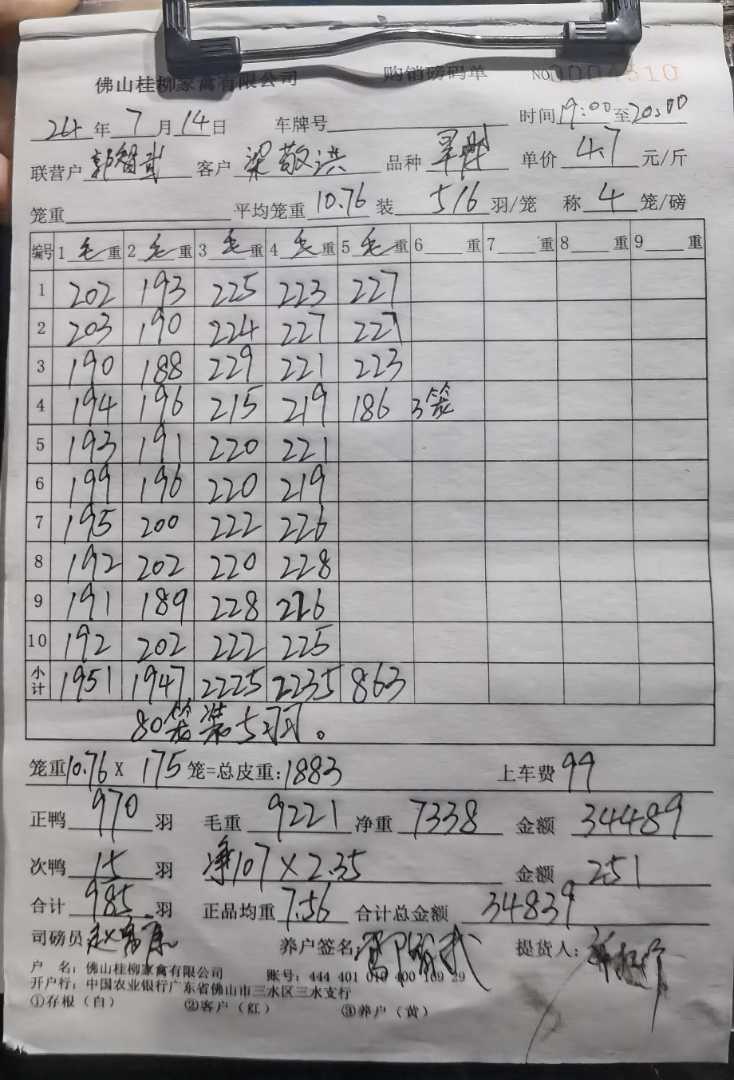 佛山桂柳家禽有限公司 购销磅码单 NO
24年7月14日 车牌号 时间19:00至20:00
联营户 郭智武 客户 梁敬洪 品种 单价 4.7 元/斤
笼重 平均笼重 10.76 装 5/6 羽/笼 称 4 笼/磅
编号 1 毛 重 2 毛 重 3 毛 重 4 毛 重 5 毛 重 6 重 7 重 8 重 9 重
1 202 193 225 223 227
2 203 190 224 227 227
3 190 188 229 221 223
4 194 196 215 219 186 3笼
5 193 191 220 221
6 199 196 220 219
7 195 200 222 226
8 192 202 220 228
9 191 189 228 226
10 192 202 222 225
小计 1951 1947 2225 2235 863
80笼装5羽。
笼重10.76 X 175 笼=总皮重:1883 上车费 99
正鸭 970 羽 毛重 9221 净重 7338 金额 34489
次鸭 15 羽 净107×2.35 金额 251
合计 985 羽 正品均重 7.56 合计总金额 34839
司磅员 养户签名 提货人:
户 名: 佛山桂柳家禽有限公司 账号: 444 401 010 400 109 29
开户行: 中国农业银行广东省佛山市三水区三水支行
①存根(白) ②客户(红) ③养户(黄)